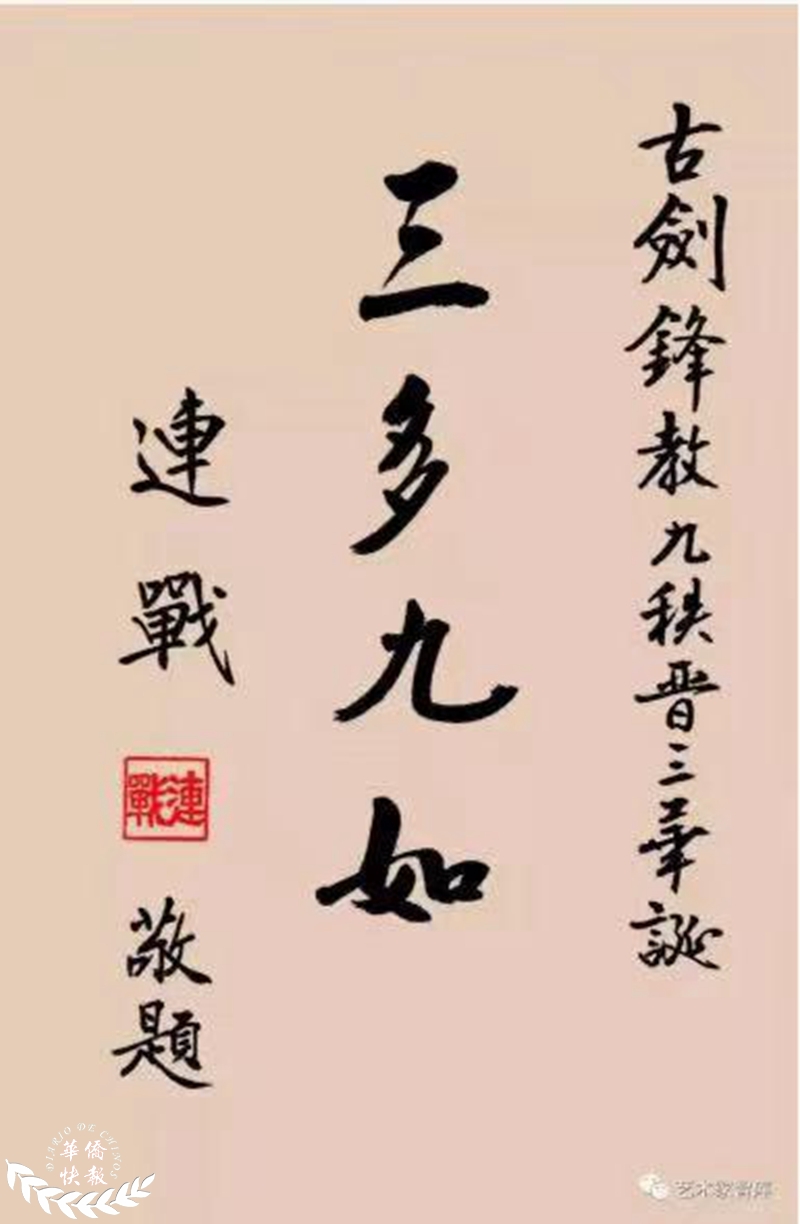 古劍鋒教九秩晉三華誕
三多九如
連戰
連戰
敬題
華僑
快報
DIARIO DE CHINOS